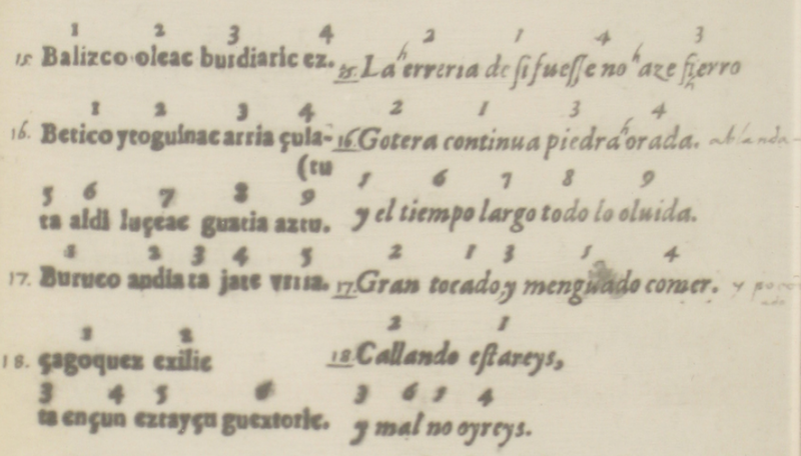 1 2 3 4 2 1 4 3
15 Balizco oleac burdiaric ez. 15. La herreria de si fuesse no haze fierro
1 2 3 4 2 1 3 4
16. Betico ytoguinac arria çula- 16. Gotera continua piedra horada. ablanda
(tu
5 6 7 8 9 5 6 7 8 9
ta aldi luçeac guztia aztu. y el tiempo largo todo lo oluida.
1 2 3 4 5 2 1 3 5 4
17. Buruco andia ta jate vrria. 17. Gran tocado, y menguado comer. y poco
1 2 2 1
18. çagoquez exilic 18. Callando estareys,
3 4 5 6 3 6 5 4
ta ençun eztayçu guextoric. y mal no oyreys.